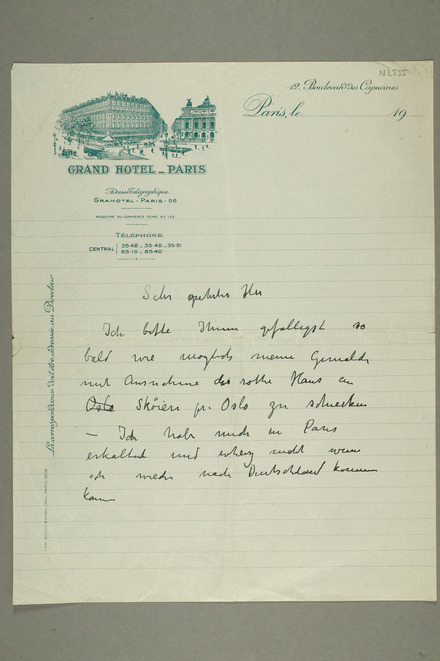 N 2755
12. Boulevard des Capucines
Paris, le 19
GRAND HOTEL - PARIS
Adresse Télégraphique
GRANOTEL - PARIS - 96
REGISTRE DU COMMERCE SEINE
TÉLÉPHONE
CENTRAL 35-48 _ 35-49 _ 35-51
65-10 _ 65-40
La correspondance doit être adressée au Directeur
Sehr geehrter Herr
Ich bitte Ihnen gefälligst so
bald wie möglich meine Gemälde
mit Ausnahme das rothe Haus an
Oslo Sköien pr Oslo zu schicken
– Ich habe mich in Paris
erkältet und weiss nicht wann
ich wieder nach Deutschland kommen
kann